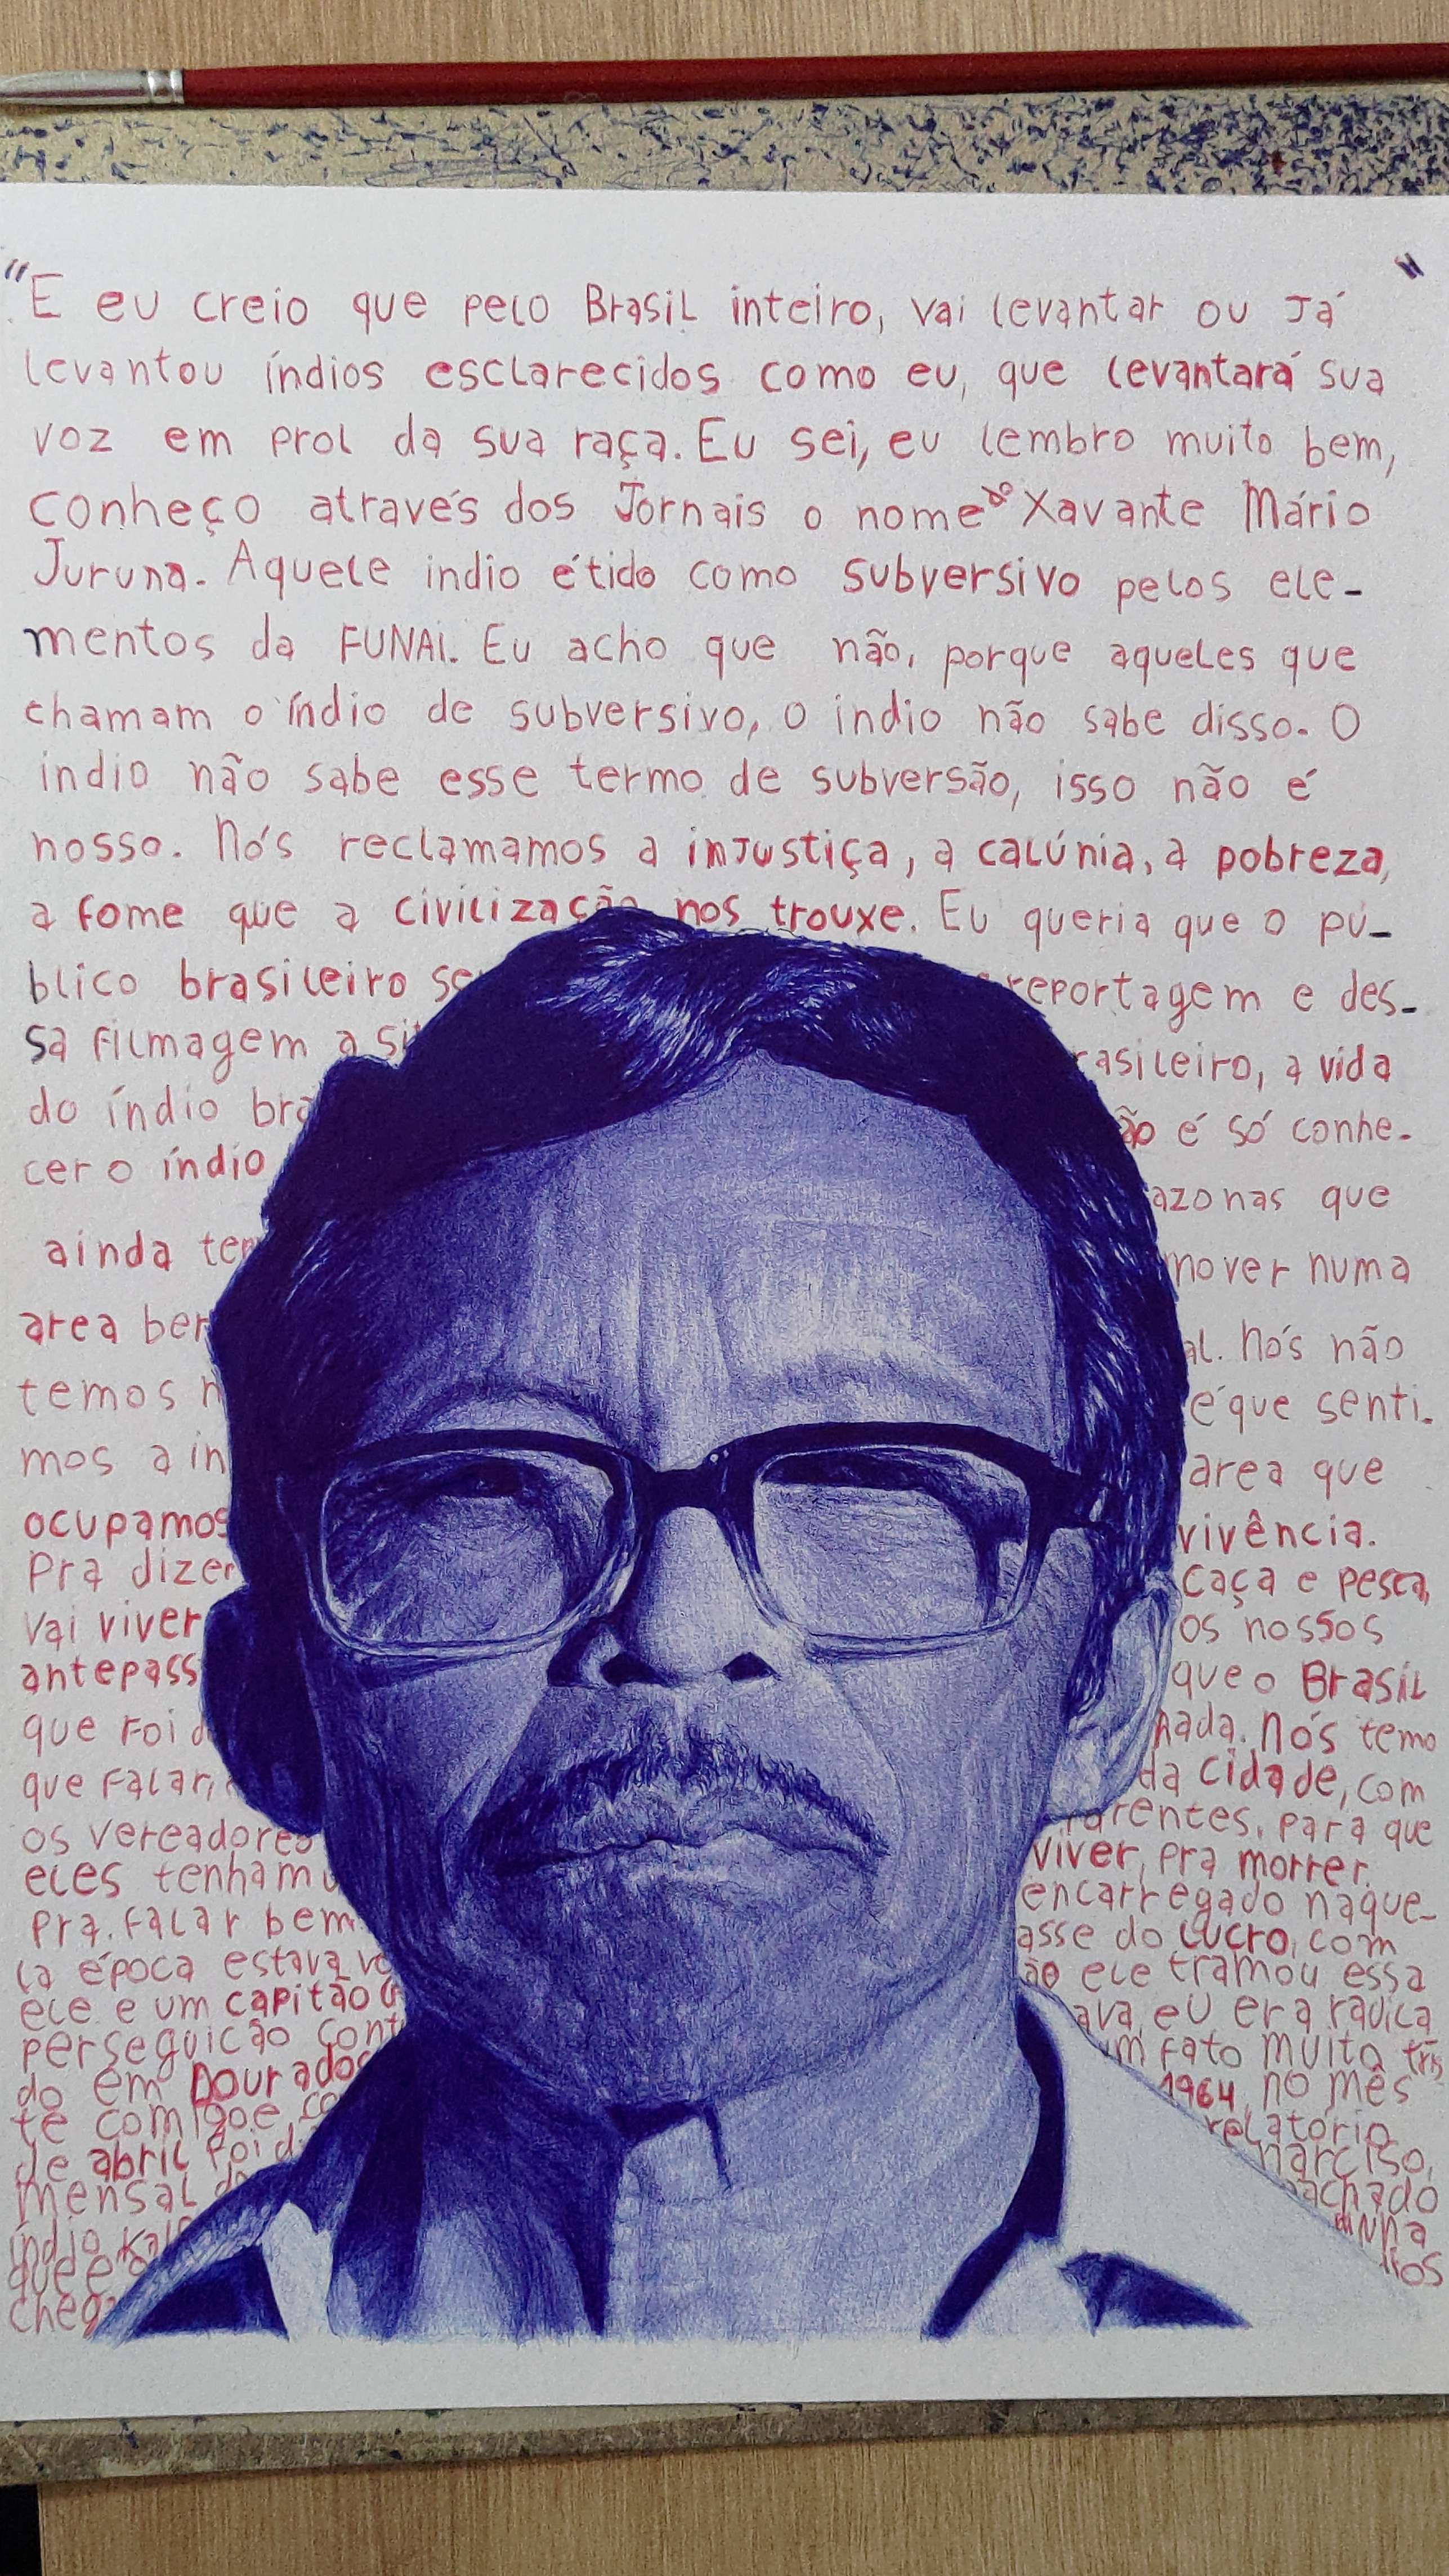 "E eu creio que pelo Brasil inteiro, vai levantar ou já "
levantou índios esclarecidos como eu, que levantará sua
voz em prol da sua raça. Eu sei, eu lembro muito bem,
conheço através dos Jornais o nome do Xavante Mário
Juruna. Aquele indio é tido como subversivo pelos ele-
mentos da FUNAI. Eu acho que não, porque aqueles que
chamam o índio de subversivo, o indio não sabe disso. O
indio não sabe esse termo de subversão, isso não é
nosso. Nós reclamamos a injustiça, a calúnia, a pobreza,
a fome que a civilização nos trouxe. Eu queria que o pú-
blico brasileiro reportagem e des-
sa filmagem a rasileiro, a vida
do índio bra ão é só conhe-
cer o índio azonas que
ainda mover numa
area al. Nós não
temos é que senti-
mos a in area que
ocupamos vivência.
Pra dizer caça e pesca,
vai viver os nossos
antepass que o Brasil
que foi nada. Nós temo
que falar, da cidade, com
os vereadores parentes, para que
eles tenham viver, pra morrer.
Pra falar bem encarregado naque-
la época estava asse do lucro, com
ele e um capitão ão ele tramou essa
perseguição cont ava, eu era radica
do em Dourados um fato muito tris
te comigo e 1964, no mês
de abril foi relatório
mensal narciso,
índio Kai machado
que e inha
chega ios